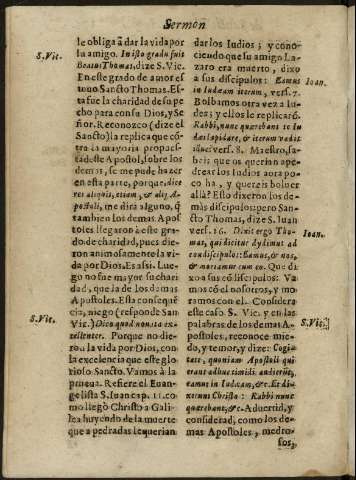 Sermon
S. Vic.
le obliga à dar la vida por
su amigo. In isto gradu fuit
Beatus Thomas, dize S. Vic.
En este grado de amor es-
tuuo Sancto Thomas. Es-
ta fue la charidad de su pe
cho para con su Dios, y Se
ñor. Reconozco (dize el
Sancto) la replica que cõ-
tra la mayoria propues-
ta deste Apostol, sobre los
demas, se me puede hazer
en esta parte, porque, dice
res aliquis, etiam, & alij A-
postoli, me dirà alguno, q̃
tambien los demas Apos
toles llegaron à este gra-
do de charidad, pues die-
ron animosamente la vi-
da por Dios. Es assi. Lue-
go no fue mayor su chari
dad, que la de los demas
Apostoles. Esta conseque
cia, niego (responde San
S. Vic.
Vic.) Dico quod non ita ex-
cellenter. Porque no die-
ron la vida por Dios, con
la excelencia que este glo
rioso Sancto. Vamos à la
prueua. Refiere el Euan-
gelista S. Iuan cap. 11. co-
mo llegò Christo a Gali-
lea huyendo de la muerte
que a pedradas le querian
dar los Iudios; y cono-
ciendo que su amigo La-
zaro era muerto, dixo
a sus discipulos: Eamus
Ioan.
in Iudæam iterum, vers. 7.
Bolbamos otra vez a Iu-
dea; y ellos le replicarõ.
Rabbi, nunc quærebant te Iu
dæi lapidare, & iterum vadis
illuc? vers. 8. Maestro, sa-
beis que os querian ape-
drear los Iudios aora po-
co ha, y quereis boluer
allà? Esto dixeron los de-
mas discipulos: pero San-
cto Thomas, dize S. Iuan
vers. 16. Dixit ergo Tho-
Ioan.
mas, qui dicitur dydimus ad
condiscipulos: Eamus, & nos,
& moriamur cum eo. Que di
xo a sus cõdiscipulos: Va-
mos cõ el nosotros, y mo-
ramos con el. Considera
este caso S. Vic. y en las
S. Vic.
palabras de los demas A-
postoles, reconoce mie-
do, y temor, y dize: Cogi-
tate, quoniam Apostoli qui
erant adhuc timidi. audierũt,
eamus in Iudæam, &c. Et di-
xerunt Christo: Rabbi nunc
quærebant, &c. Aduertid, y
considerad, como los de-
mas Apostoles, medro-
sos,